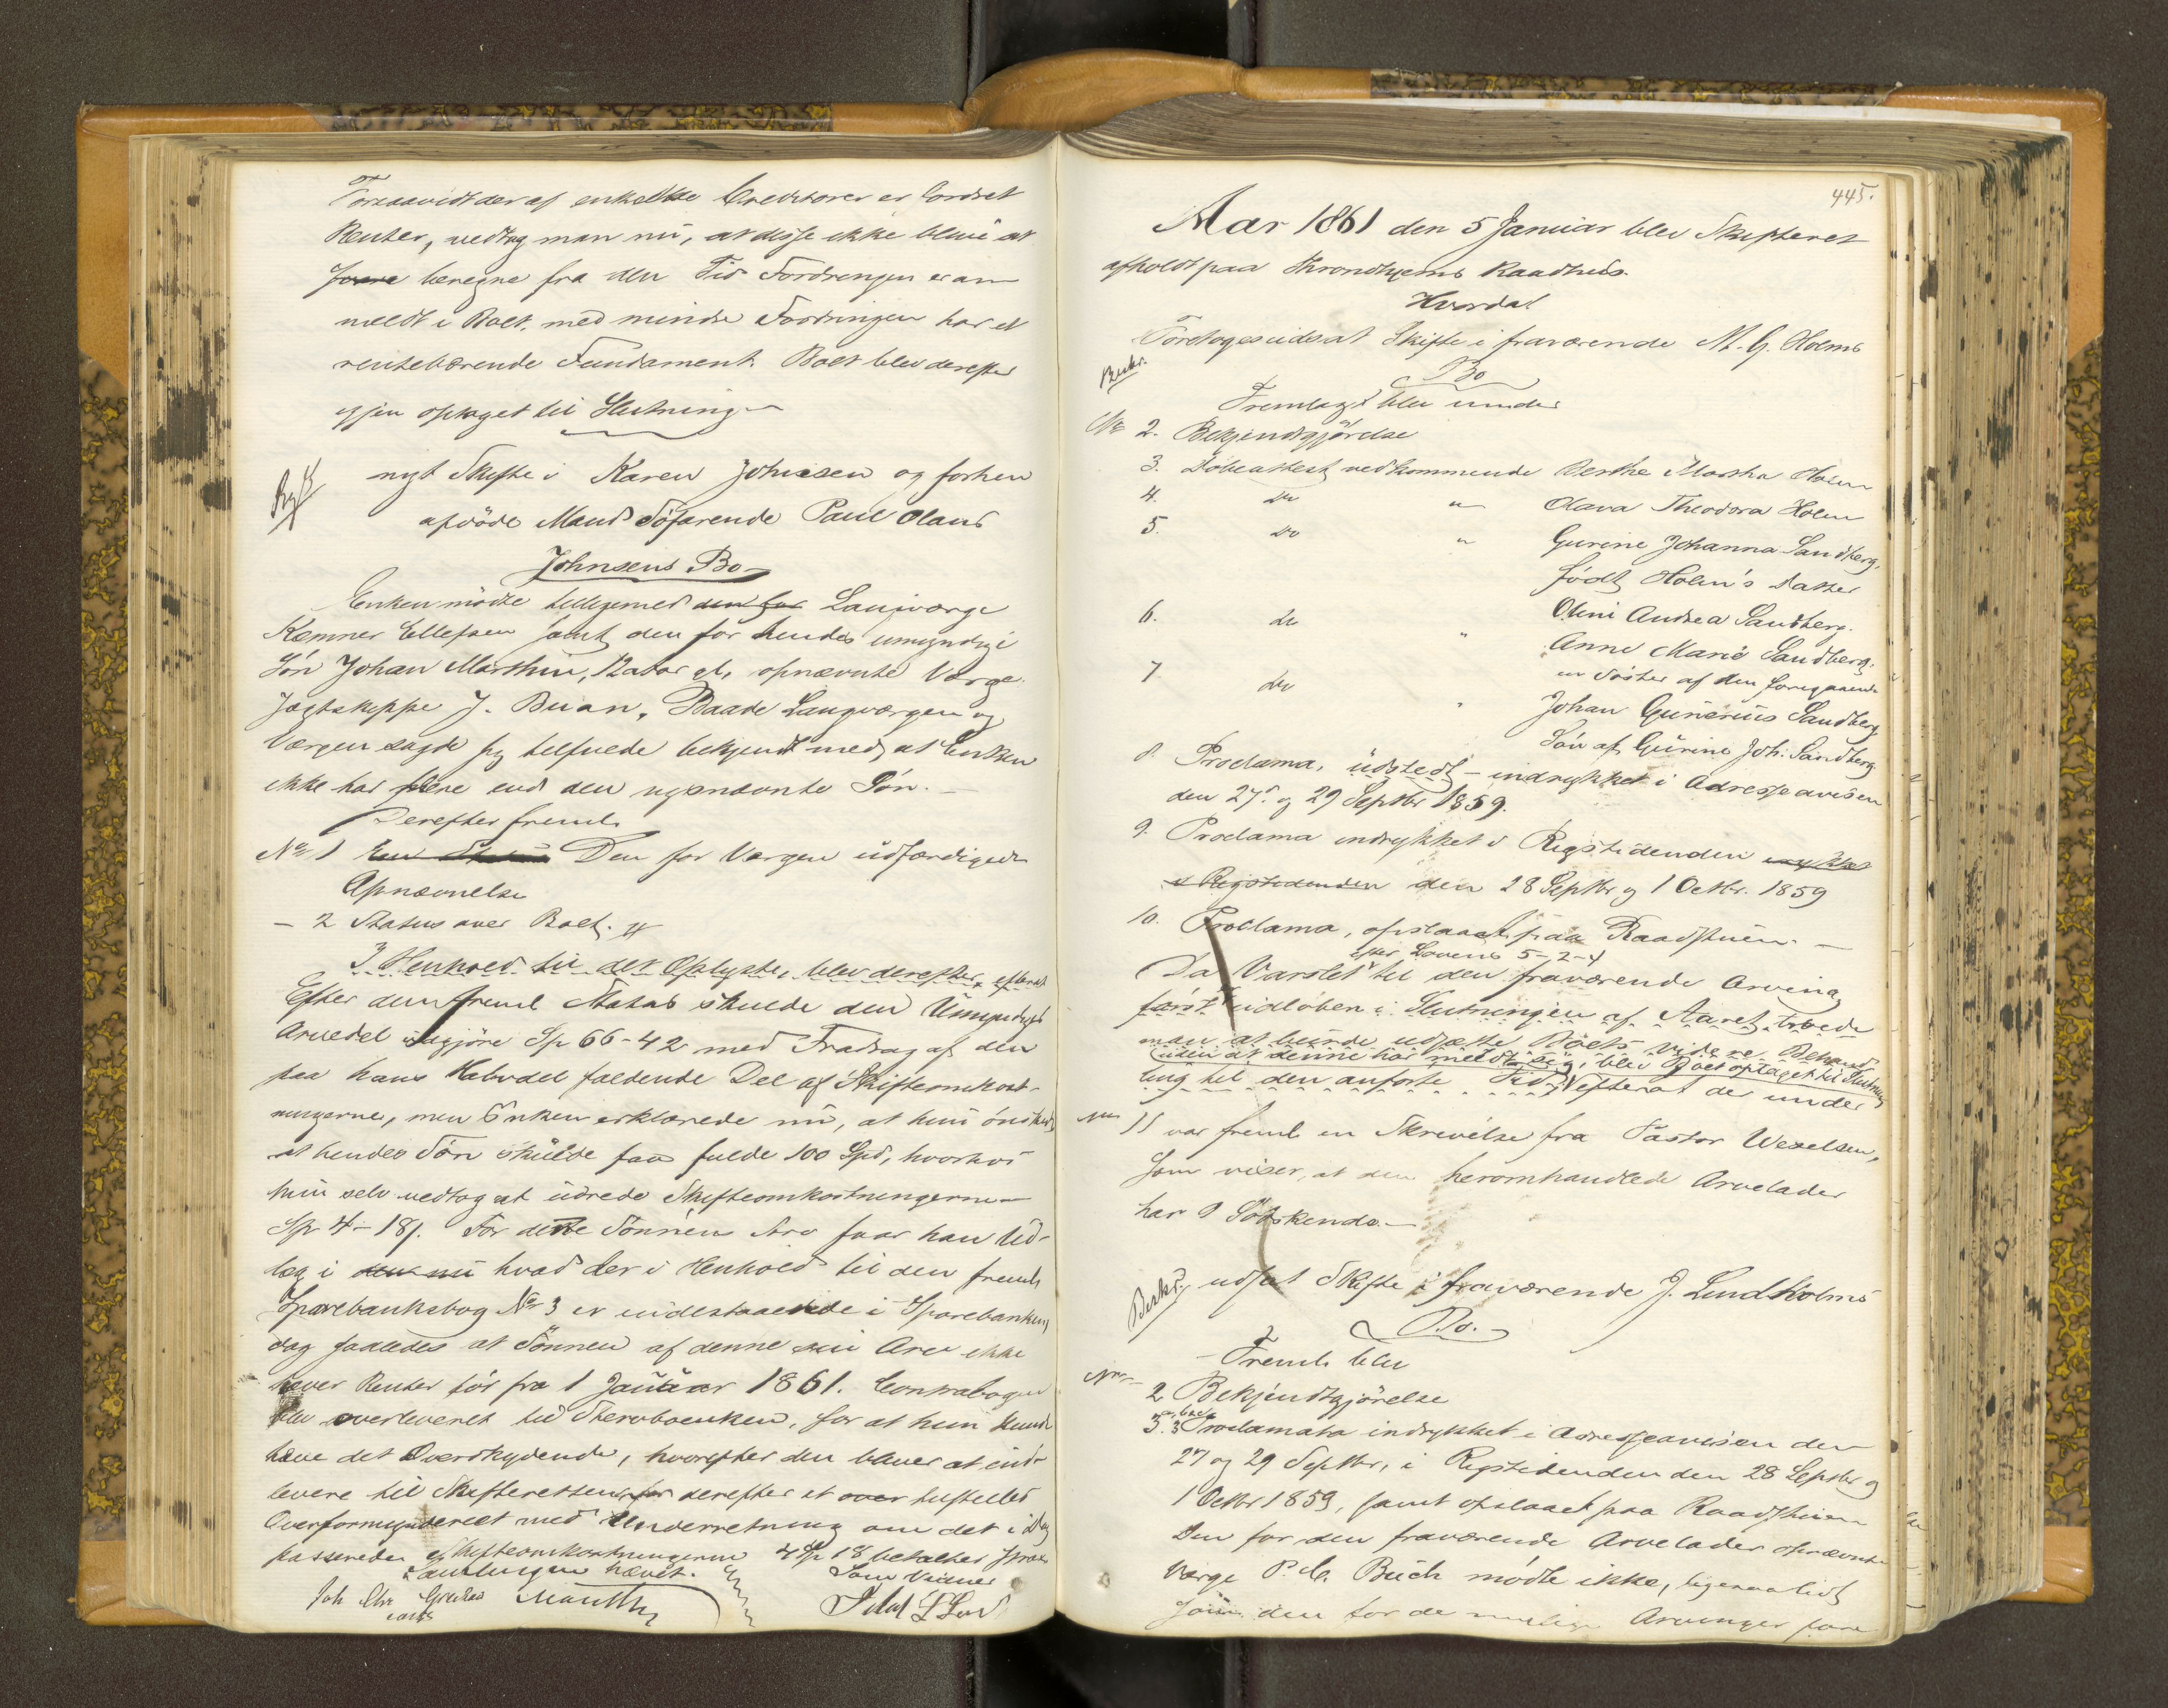 Forsaavidt der af enkelte Creditorer er fordret
Renter, vedtog man nu, at disse ikke blive at
svare beregne fra den Tid Fordringen er an-
meldt i Boet, med mindre Fordringen har et
rentebærende Fundament. Boet blev derefter
igjen optaget til Slutning
nyt Skifte i Karen Johnsen og forhen
afdöde Mand Söfarende Paul Olaus
Johnsens Bo
Enken mödte tilligemed den for Laugværge
Kæmner Ellefsen samt den for hendes umyndige
Sön Johan Marthin, 12 Aar gl, opnævnte Værge
Jægtskipper J. Buan. Baade Laugværgen og
Værgen sagde sig tilfreds bekjendt med, at Enken
ikke har flere end den nysnævnte Sön.
Derefter freml
No 1 Den for Værgen udfærdigede
Opnævnelse
- 2 Status over Boet.
I Henhold til det Oplyste, blev derefter
Efter den freml Status skulde den Umyndiges
Arvedel udgjöre Sp 66-42 med Fradrag af den
paa hans Hoveddel faldende Del af Skifteomkost-
ningerne, men Enken erklærede nu, at hun önskede
at hendes Sön skulde faa fulde 100 Spd, hvorhos
hun selv vedtog at udrede Skifteomkostningerne
Sp 4-18ß. For dette Sönnens Arv faar han Ud-
læg i den nu hvad der i Henhold til den freml
Sparebanksbog No 3 er indestaaende i Sparebanken
dog saaledes at Sönnen af denne sin Arv ikke
hæver Renter för fra 1 Januar 1861. Contrabogen
blev overleveret til Stervboenken, for at hun kunde
hæve det Overskydende, hvorefter den bliver at ind-
levere til Skifteretten for derefter at over tilstilles
Overformynderiet med Underretning om det i Dag
passerede. Skifteomkostningerne 4 Sp 18 betaltes strax
Samlingen hævet. Som Vidner
Joh Chr
445.
Aar 1861 den 5 Januar blev Skifteret
afholdt paa Throndhjems Raadhus.
Hvorda
Foretoges udsat Skifte i fraværende M. G. Holms
Beskr.
Bo
Fremlagt blev under
No 2. Bekjendtgjörelse
3. Döbeattest vedkommende Berthe Martha Holm
4. do " Olava Theodora Holm
5. do " Gurine Johanna Sandberg,
födt Holm's Datter
6. do " Olini Andrea Sandberg.
Anne Marie Sandberg.
en Söster af den foregaaende
7 do " Johan Gunerius Sandberg
Sön af Gurine Joh. Sandberg
8. Proclama, udstedt - indrykket i Adresseavisen
den 27. og 29 Septbr 1859.
9. Proclama indrykket i Rigstidenden indrykket
i Rigstidenden den 28 Septbr og 1 Octbr. 1859
10. Proclama, opslaaet paa Raadstuen.
efter Lovens 5-2-4
Da Varslet til den fraværende Arving
först udlöben i Slutningen af Aaret, troede
man at burde udsætte Boets videre Behand-
uden at denne har meldt sig, blev Boet optaget til Slutning
ling til den anförte Tid, efterat der under
No 11 var freml en Skrivelse fra Pastor Wexelsen,
som viser, at den heromhandlede Arvelader
har 9 Södskende.
Beskr. udsat Skifte i fraværende J. Lundholms
Bo.
Freml. blev
No
2 Bekjendtgjörelse
3. 3 Proclamata indrykket i Adresseavisen den
27 og 29 Septbr, i Rigstidenden den 28 Septbr og
1 Octbr 1859, samt opslaaet paa Raadstuen
Den for den fraværende Arvelader opnævnte
Værge P. C. Buch mödte ikke, ligesaalidt
som den for de mulige Arvinger